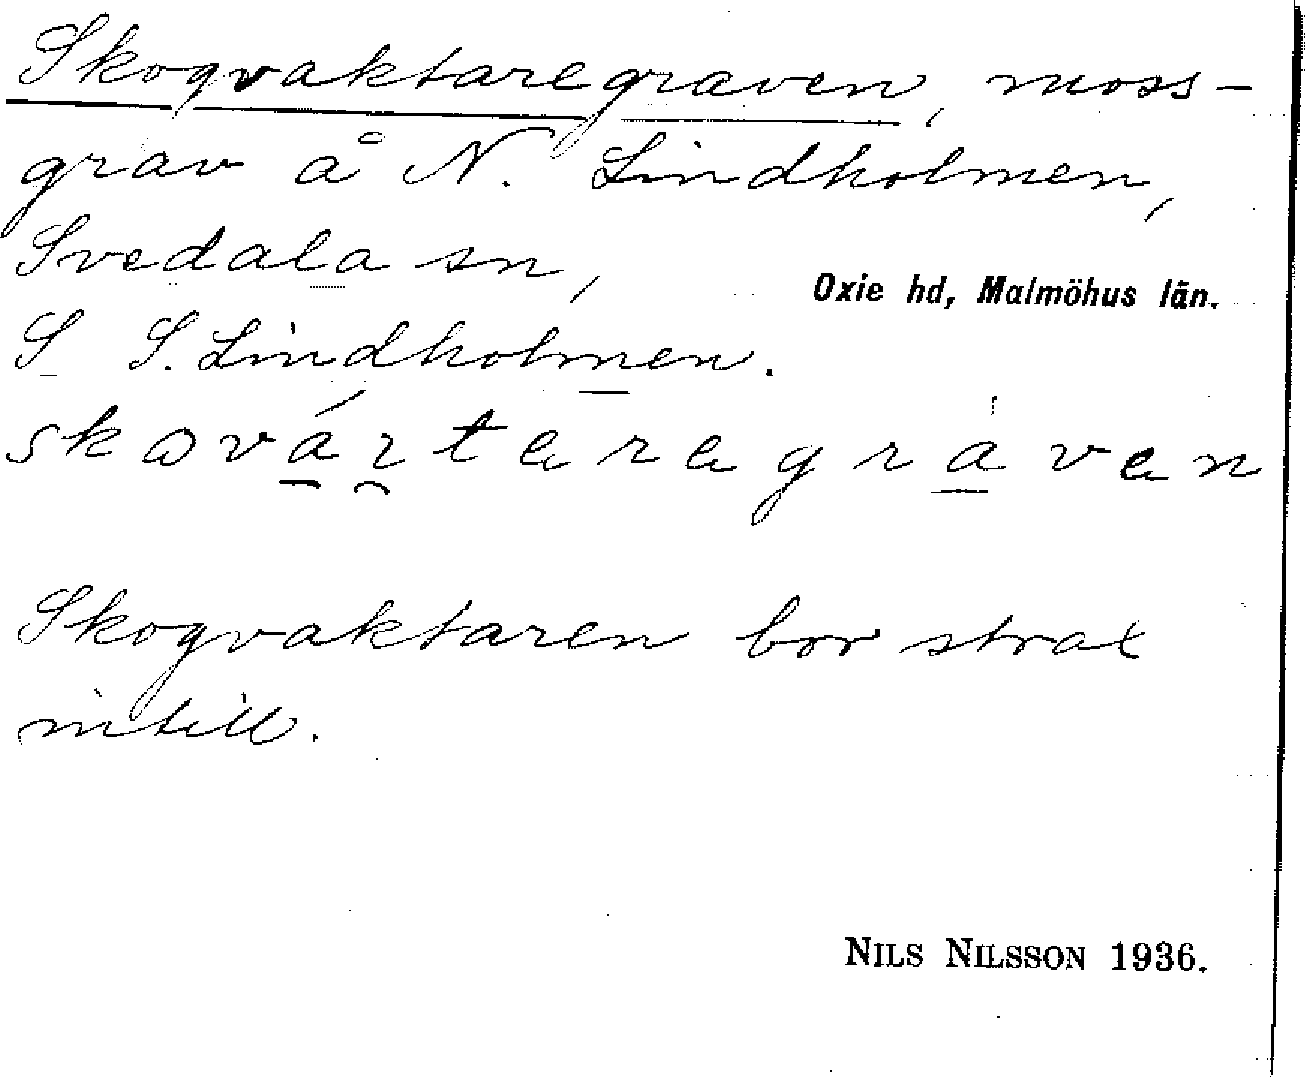 Skogvaktaregraven, moss-
grav å N. Lindholmen,
Svedala sn,
Oxie hd, Malmöhus län.
S S. Lindholmen.
Skogvaktaren bor strax
intill.
NILS NILSSON 1936.